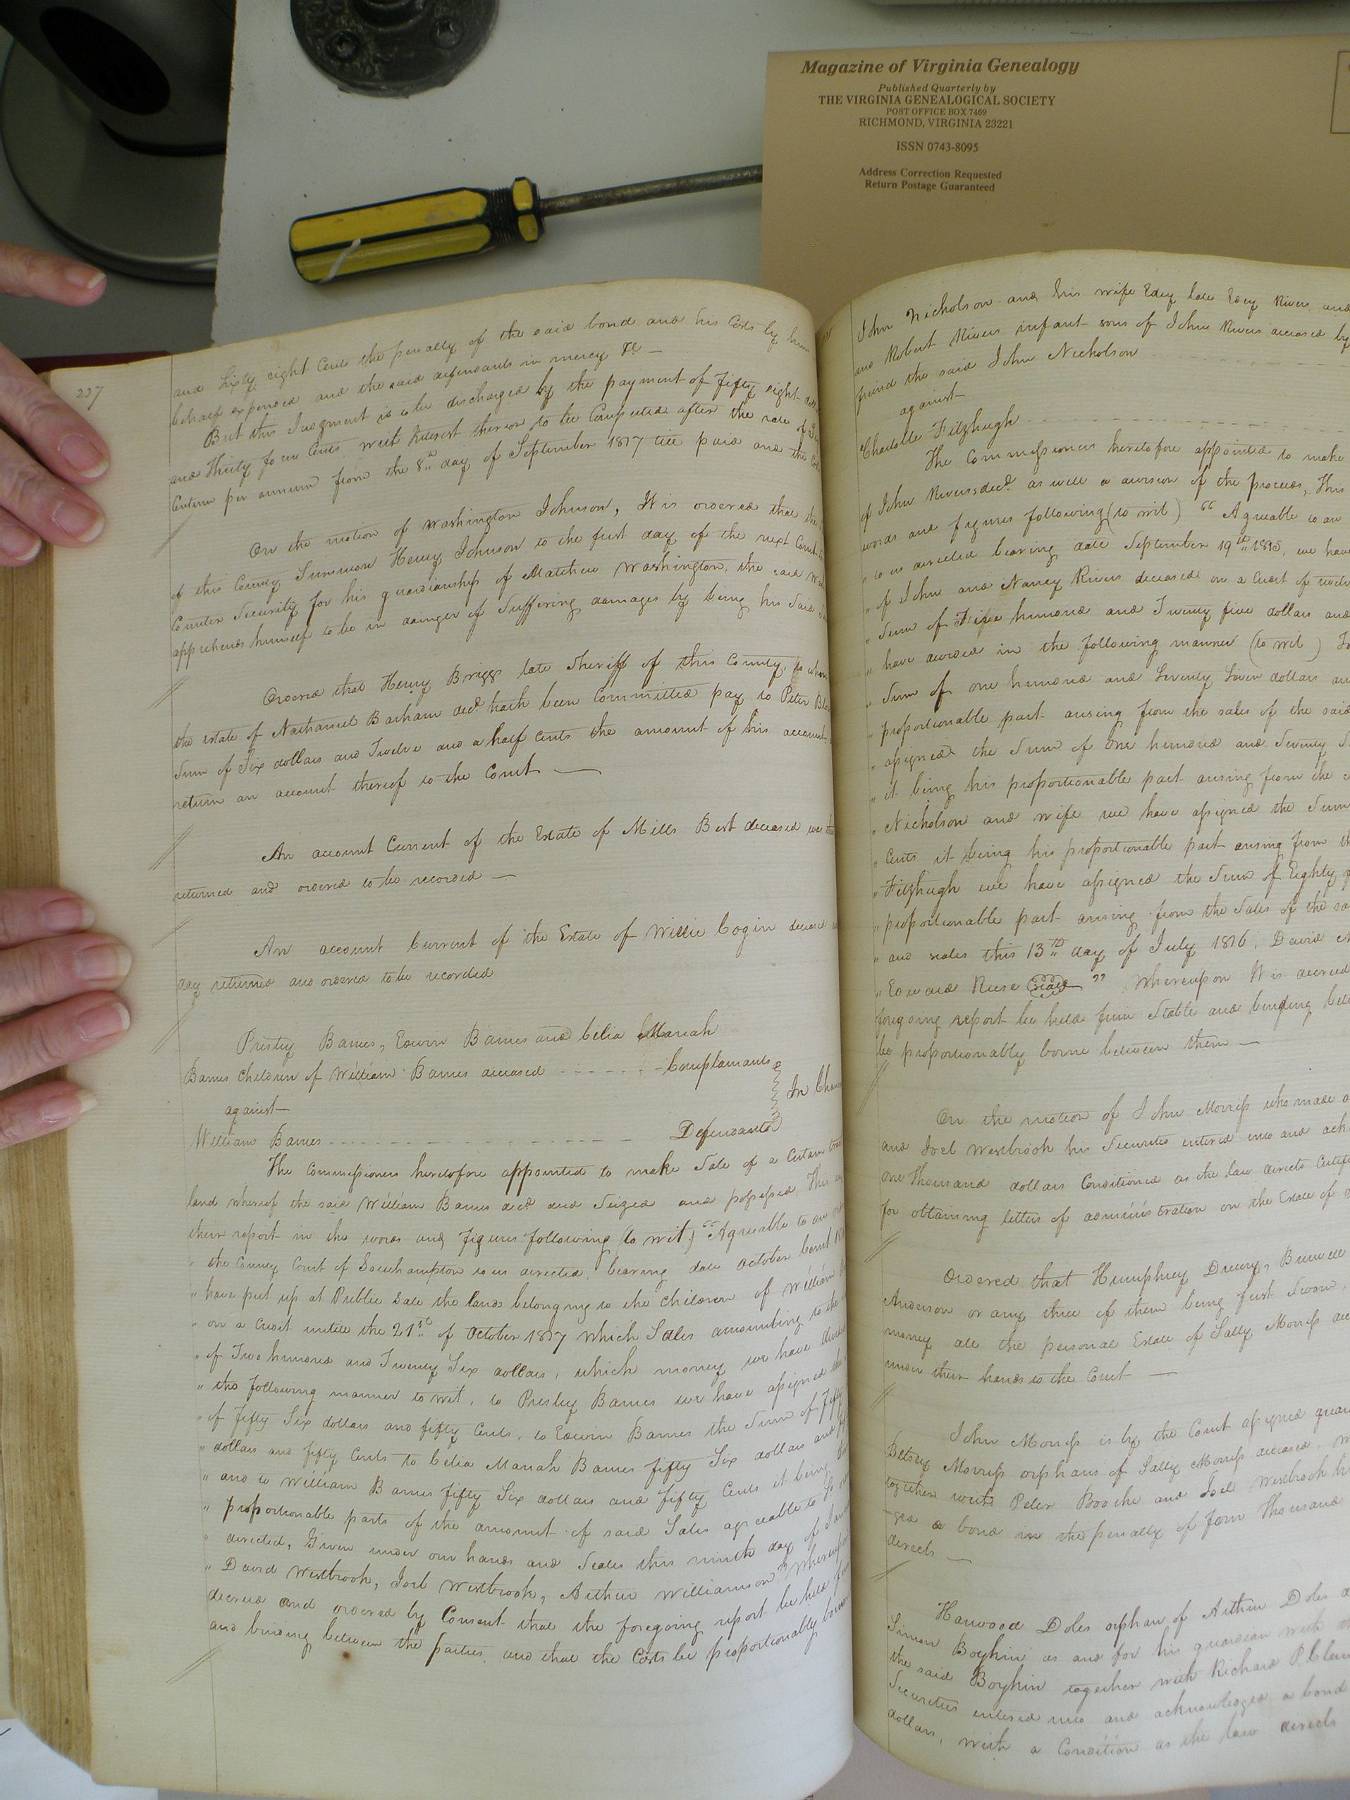 Magazine of Virginia Genealogy
Published Quarterly by
THE VIRGINIA GENEALOGICAL SOCIETY
POST OFFICE BOX 7469
RICHMOND, VIRGINIA 23221
ISSN 0743-8095
Address Correction Requested
Return Postage Guaranteed
237
and Sixty eight Cents the penalty of the said bond and his Costs by him
behalf expended and the said defendants in mercy &c
But this Judgment is to be discharged by the payment of Fifty eight
and Thirty four Cents with Interest thereon to be Computed after the rate of
Centum per annum from the 8th day of September 1817 till paid and the
On the motion of Washington Johnson, It is ordered that the
of this County Summon Henry Johnson to the first day of the next Court
Counter Security for his guardianship of Matthew Washington, the said
apprehends himself to be in danger of Suffering damages by being his said
Ordered that Henry Briggs late Sheriff of this County, to whom
the estate of Nathaniel Barham decd hath been Committed pay to Peter
Sum of Six dollars and Twelve and a half cents the amount of his account
return an account thereof to the Court
An account Current of the Estate of Mills Best deceased
returned and ordered to be recorded
An account Current of the Estate of Willie Cogin
day returned and ordered to be recorded
Presley Barnes, Edwin Barnes and Celia Mariah
Barnes Children of William Barnes deceased - - - - - - Complainants
against
In
William Barnes - - - - - - - - - - Defendants
The Commissioners heretofore appointed to make Sale of a Certain
land whereof the said William Barnes decd died Seized and possessed This
their report in the words and figures following (to wit) "Agreeable to an
" the County Court of Southampton to us directed, bearing date October Court
" have put up at Public Sale the lands belonging to the Children of William
" on a Credit untill the 21st of October 1817 which Sales amounting to the
" of Two hundred and Twenty Six dollars, which money we have
" the following manner to wit, to Presley Barnes we have assigned
" of fifty Six dollars and fifty Cents, to Edwin Barnes the Sum of Fifty
" dollars and fifty Cents to Celia Mariah Barnes fifty Six dollars and
" and to William Barnes fifty Six dollars and fifty Cents it being
" proportionable parts of the amount of said Sales agreeable to
" directed, Given under our hands and Seals this ninth day of
" David Westbrook, Joel Westbrook, Arthur Williamson" Whereupon
decreed and ordered by Consent that the foregoing report be held
and binding between the parties, and that the Costs be proportionably
John Nicholson and his wife Edey late Edey Rivers and
and Robert Rivers infant sons of John Rivers deceased by
friend the said John Nicholson
against
Charlotte Fitzhugh
The Commissioners heretofore appointed to make
of John Rivers decd as well a division of the proceeds, This
words and figures following (to wit) "Agreeable to an
" to us directed bearing date September 19th 1815, we have
" of John and Nancy Rivers deceased on a Credit of
" Sum of Five hundred and Twenty five dollars and
" have divided in the following manner (to wit)
" Sum of one hundred and Seventy Seven dollars
" proportionable part arising from the sales of the said
" assigned the Sum of One hundred and Seventy
" it being his proportionable part arising from the
" Nicholson and wife we have assigned the Sum
" Cents it being his proportionable part arising from the
" Fitzhugh we have assigned the Sum of Eighty
" proportionable part arising from the Sales of the
" and seales this 13th day of July 1816, David
" Edward Reese Seal " Whereupon It is decreed
foregoing report be held firm Stable and binding
be proportionably borne between them
On the motion of John Morriss who made
and Joel Westbrook his Securities entered into and
one Thousand dollars Conditioned as the law directs
for obtaining letters of administration on the Estate of
Ordered that Humphrey Drewry, Burwell
Anderson or any three of them being first Sworn,
money all the personal Estate of Sally Morriss
under their hands to the Court
John Morriss is by the Court assigned
Betsey Morriss orphans of Sally Morriss deceased,
together with Peter Booth and Joel Westbrook
a bond in the penalty of Four Thousand
directs
Harwood Doles orphan of Arthur Doles
Simon Boykin as and for his guardian with
the said Boykin together with Richard P.
Securities entered into and acknowledged a bond
dollars, with a Condition as the law directs